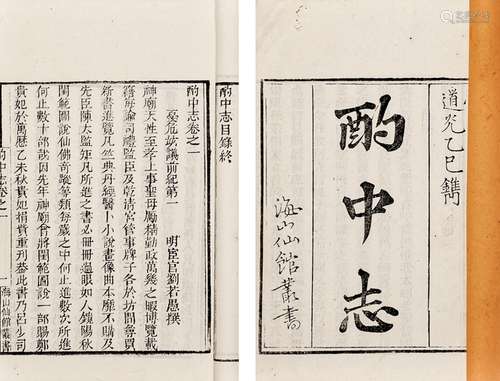 道光乙巳鐫
酌中志
海山仙館叢書
酌中志目錄終
酌中志卷之一
憂危竑議前紀第一 明臣宦劉若愚撰
神廟天性至孝上事聖母勵精勤政萬幾之暇博覽載
籍每諭司禮監臣及乾清宮管事牌子各於坊間尋買
新書進覽凡竺典丹經醫卜小說畫像曲本靡不購及
先臣陳太監矩凡所進之書必冊冊過眼如人鏡陽秋
閨範圖說仙佛奇蹤等類每歲之中何止進數次所進
何止數十部哉因先年神廟曾將閨範圖說一部賜鄭
貴妃於萬曆乙未秋貴妃捐貲重刊葢此書乃呂少司
酌中志卷之一
一
海山仙館叢書